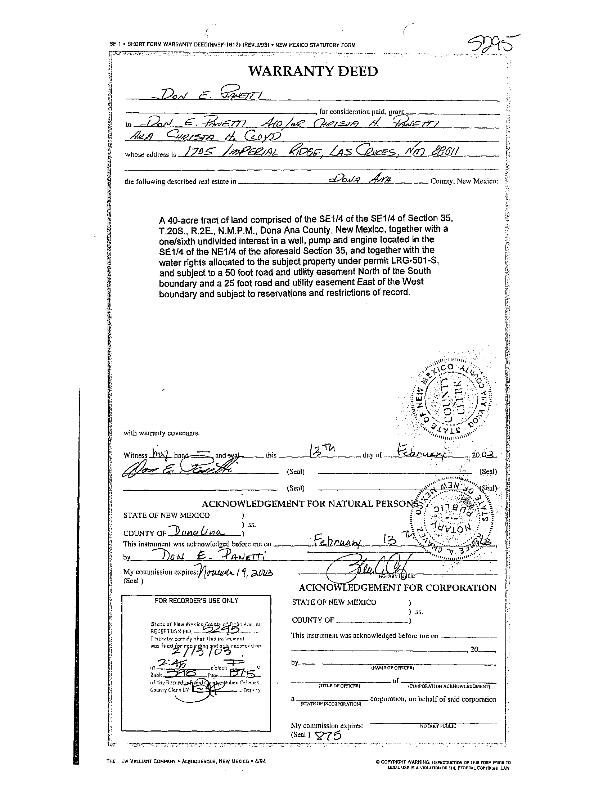 5295
SF 1 • SHORT FORM WARRANTY DEED (NMSF 1612) (REV. 3/93) • NEW MEXICO STATUTORY FORM
WARRANTY DEED
DON E. PANETTI
, for consideration paid, grant
to DON E. PANETTI AND/OR CHRISTA H. PANETTI
AKA CHRISTA H. CLOYD
whose address is 1705 IMPERIAL RIDGE, LAS CRUCES, NM 88011
the following described real estate in DONA ANA County, New Mexico:
A 40-acre tract of land comprised of the SE1/4 of the SE1/4 of Section 35,
T.20S., R.2E., N.M.P.M., Dona Ana County, New Mexico, together with a
one/sixth undivided interest in a well, pump and engine located in the
SE1/4 of the NE1/4 of the aforesaid Section 35, and together with the
water rights allocated to the subject property under permit LRG-501-S,
and subject to a 50 foot road and utility easement North of the South
boundary and a 25 foot road and utility easement East of the West
boundary and subject to reservations and restrictions of record.
STATE OF NEW MEXICO
COUNTY CLERK
with warranty covenants.
Witness my hand and seal this 13TH day of February, 2003
Don E. Panetti (Seal) (Seal)
(Seal) (Seal)
ACKNOWLEDGEMENT FOR NATURAL PERSONS
STATE OF NEW MEXICO )
) ss.
COUNTY OF Dona Ana )
This instrument was acknowledged before me on February 13TH
by DON E. PANETTI
NOTARY PUBLIC
My commission expires: November 19, 2003
(Seal)
ACKNOWLEDGEMENT FOR CORPORATION
FOR RECORDER'S USE ONLY
State of New Mexico, County of Dona Ana, ss
RECEPTION NO. 5295
I hereby certify that this instrument
was filed for recording and duly recorded on
2/13/03
at 2:45 o'clock P M
Book Page 875
of the Records of said County
County Clerk BY Deputy
STATE OF NEW MEXICO )
) ss.
COUNTY OF )
This instrument was acknowledged before me on
, 20
by
(NAME OF OFFICER)
of
(TITLE OF OFFICER) (CORPORATION ACKNOWLEDGEMENT)
a corporation, on behalf of said corporation
(STATE OF INCORPORATION)
My commission expires:
NOTARY PUBLIC
(Seal) 875
THE VALLIANT COMPANY • ALBUQUERQUE, NEW MEXICO
© COPYRIGHT WARNING: REPRODUCTION OF THIS FORM PRIOR TO